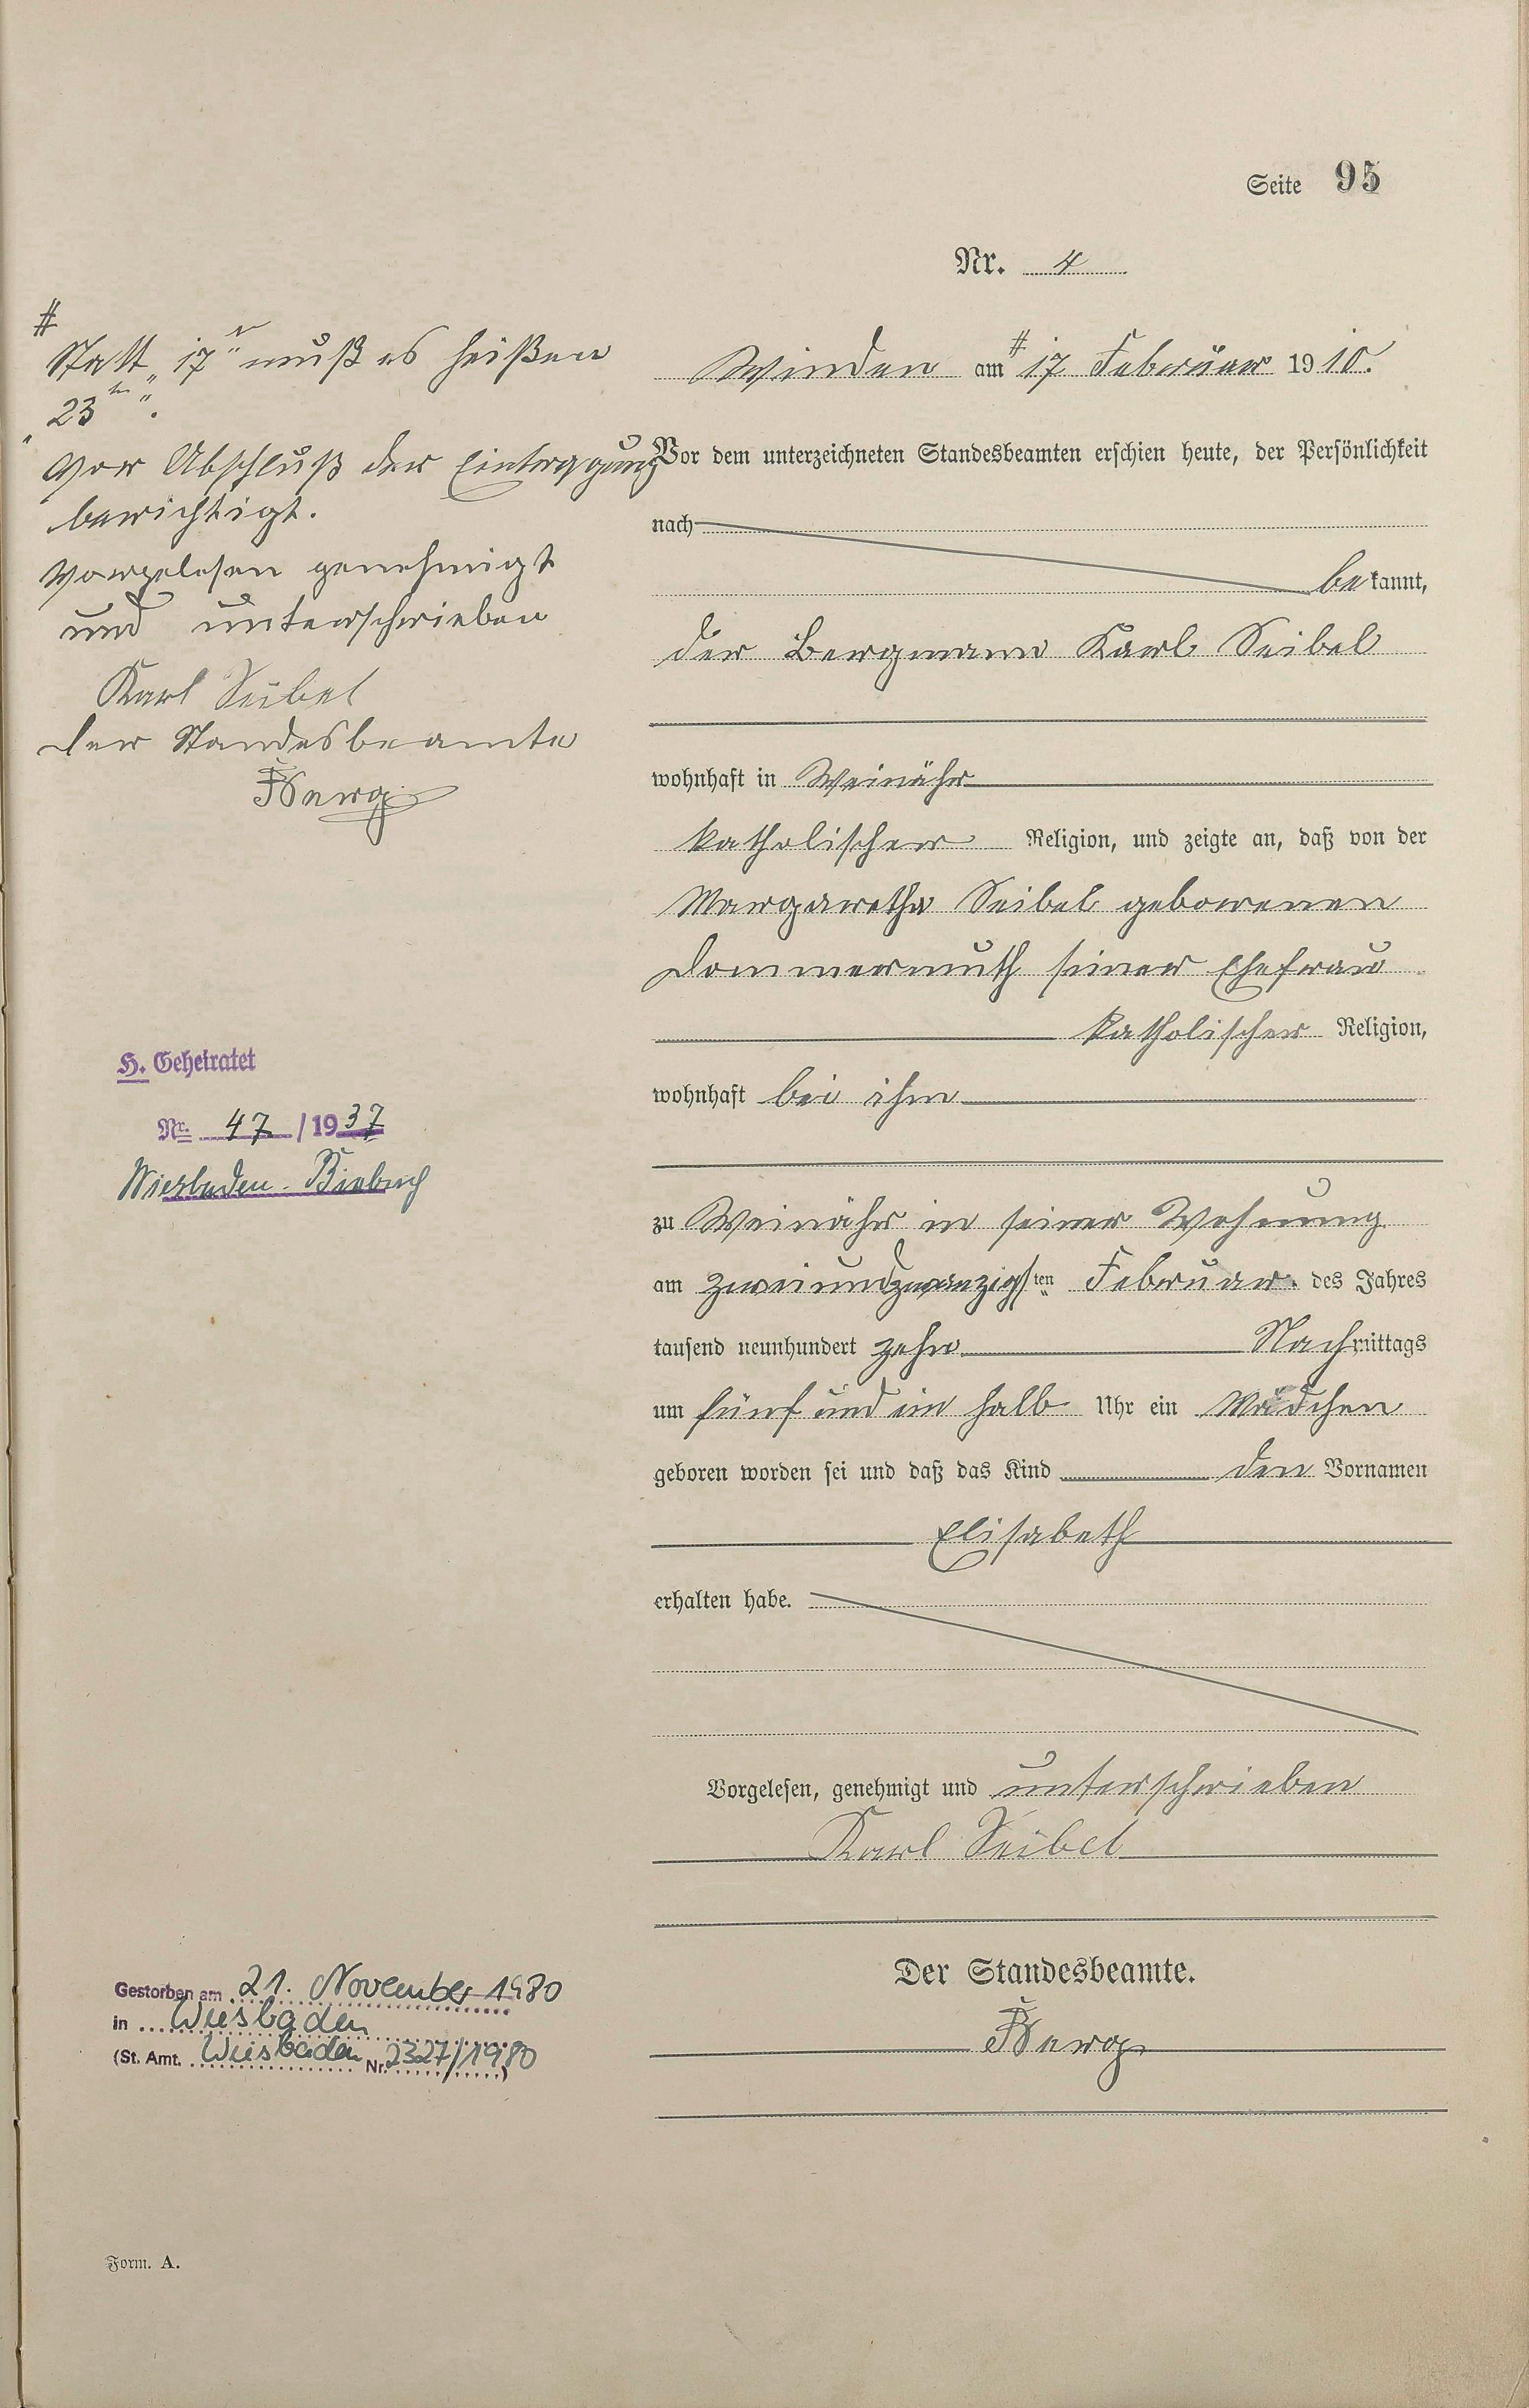 Seite 95
Nr. 4
#
Statt „17" muß es heißen
„23ten".
Vor Abschluß der Eintragung
berichtigt.
Vorgelesen genehmigt
und unterschrieben
Karl Seibel
der Standesbeamte
Winden am # 17 Februar 1910.
Vor dem unterzeichneten Standesbeamten erschien heute, der Persönlichkeit
nach
bekannt,
der Bergmann Karl Seibel
wohnhaft in Weinähr
katholischer Religion, und zeigte an, daß von der
Margaretha Seibel geborenen
Dommermuth seiner Ehefrau
katholischer Religion,
wohnhaft bei ihm
zu Weinähr in seiner Wohnung
am zweiundzwanzigsten Februar des Jahres
tausend neunhundert zehn Nachmittags
um fünf und ein halb Uhr ein Mädchen
geboren worden sei und daß das Kind den Vornamen
Elisabeth
erhalten habe.
Vorgelesen, genehmigt und unterschrieben
Karl Seibel
Der Standesbeamte.
H. Geheiratet
Nr. 47 / 1937
Wiesbaden-Biebrich
Gestorben am 21. November 1980
in Wiesbaden
(St. Amt. Wiesbaden Nr. 2327/1980)
Form. A.